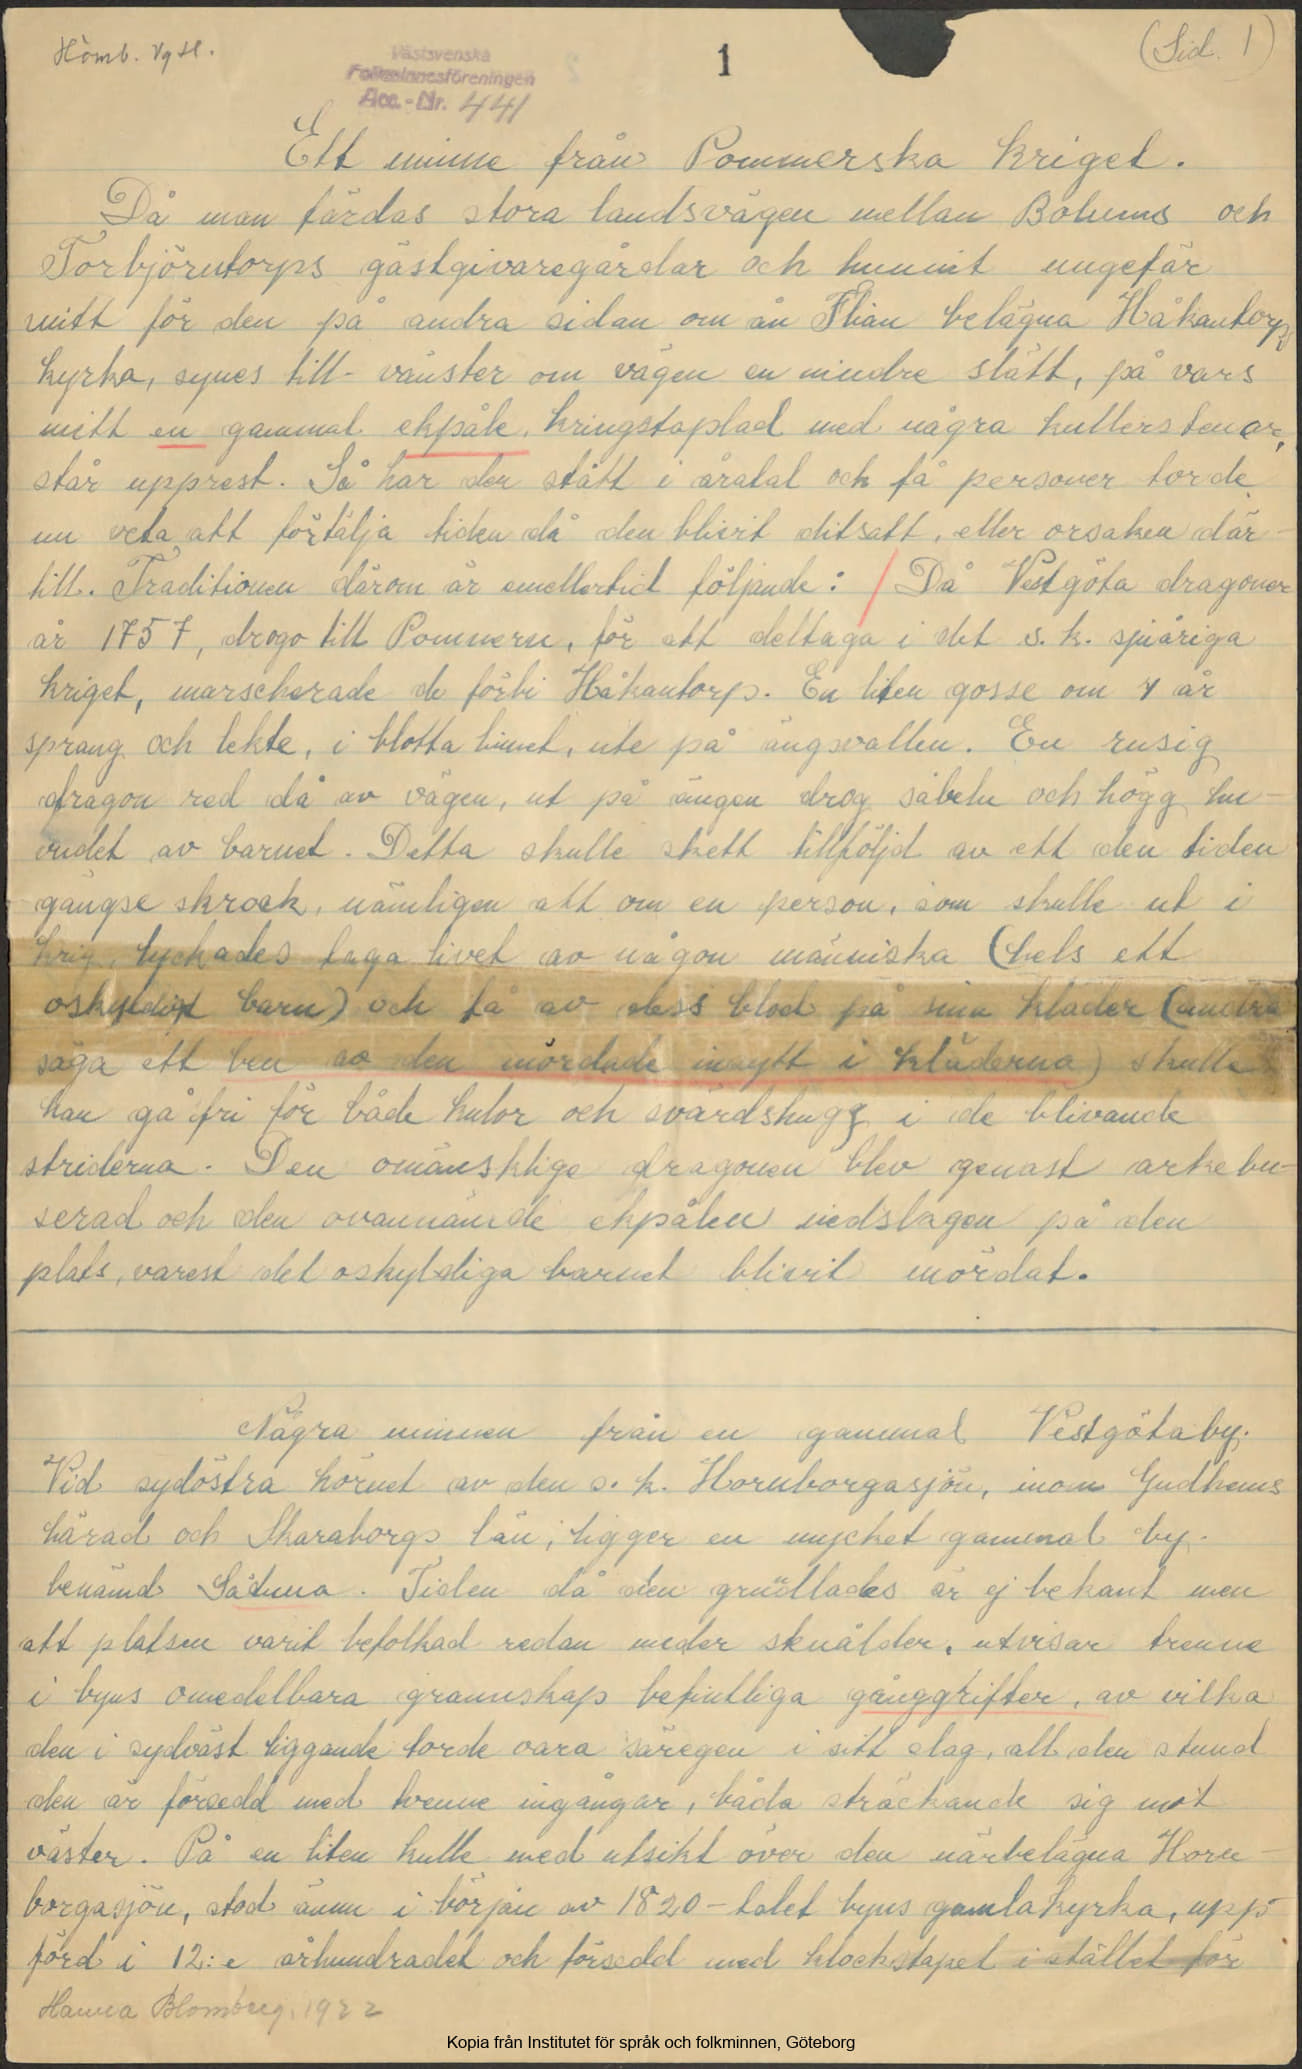 Hömb. Vg Hl.
Västsvenska
Folkminnesföreningen
Acc.-Nr. 441
1
(Sid. 1)
Ett minne från Pommerska kriget.
Då man färdas stora landsvägen mellan Bolums och
Torbjörntorps gästgivaregårdar och hunnit ungefär
mitt för den på andra sidan om ån Flian belägna Håkantorps
kyrka, synes till vänster om vägen en mindre slätt, på vars
mitt en gammal ekpåle, kringstaplad med några kullerstenar,
står upprest. Så har den stått i åratal och få personer torde
nu veta att förtälja tiden då den blivit ditsatt, eller orsaken där-
till. Traditionen därom är emellertid följande: / Då Vestgöta dragoner
år 1757, drogo till Pommern, för att deltaga i det s. k. sjuåriga
kriget, marscherade de förbi Håkantorp. En liten gosse om 4 år
sprang och lekte, i blotta linnet, ute på ängsvallen. En rusig
dragon red då av vägen, ut på ängen drog sabeln och högg hu-
vudet av barnet. Detta skulle skett tillföljd av ett den tiden
gängse skrock, nämligen att om en person, som skulle ut i
krig, lyckades taga livet av någon människa (hels ett
oskyldigt barn) och få av dess blod på sina kläder (andra
säga ett ben av den mördade insytt i kläderna) skulle
han gå fri för både kulor och svärdshugg i de blivande
striderna. Den omänsklige dragonen blev genast arkebu-
serad och den ovannämde ekpålen nedslagen på den
plats, varest det oskyldiga barnet blivit mördat.
Några minnen från en gammal Vestgötaby.
Vid sydöstra hörnet av den s. k. Hornborgasjön, inom Gudhems
härad och Skaraborgs län, ligger en mycket gammal by.
benämd Sätuna. Tiden då den grundlades är ej bekant men
att platsen varit befolkad redan under stenålder, utvisar trenne
i byns omedelbara grannskap befintliga gånggrifter, av vilka
den i sydväst liggande torde vara säregen i sitt slag, all den stund
den är försedd med tvenne ingångar, båda sträckande sig mot
väster. På en liten kulle med utsikt över den närbelägna Horn-
borgasjön, stod ännu i början av 1820-talet byns gamla kyrka, upp-
förd i 12:e århundradet och försedd med klockstapel i stället för
Hanna Blomberg, 1922
Kopia från Institutet för språk och folkminnen, Göteborg